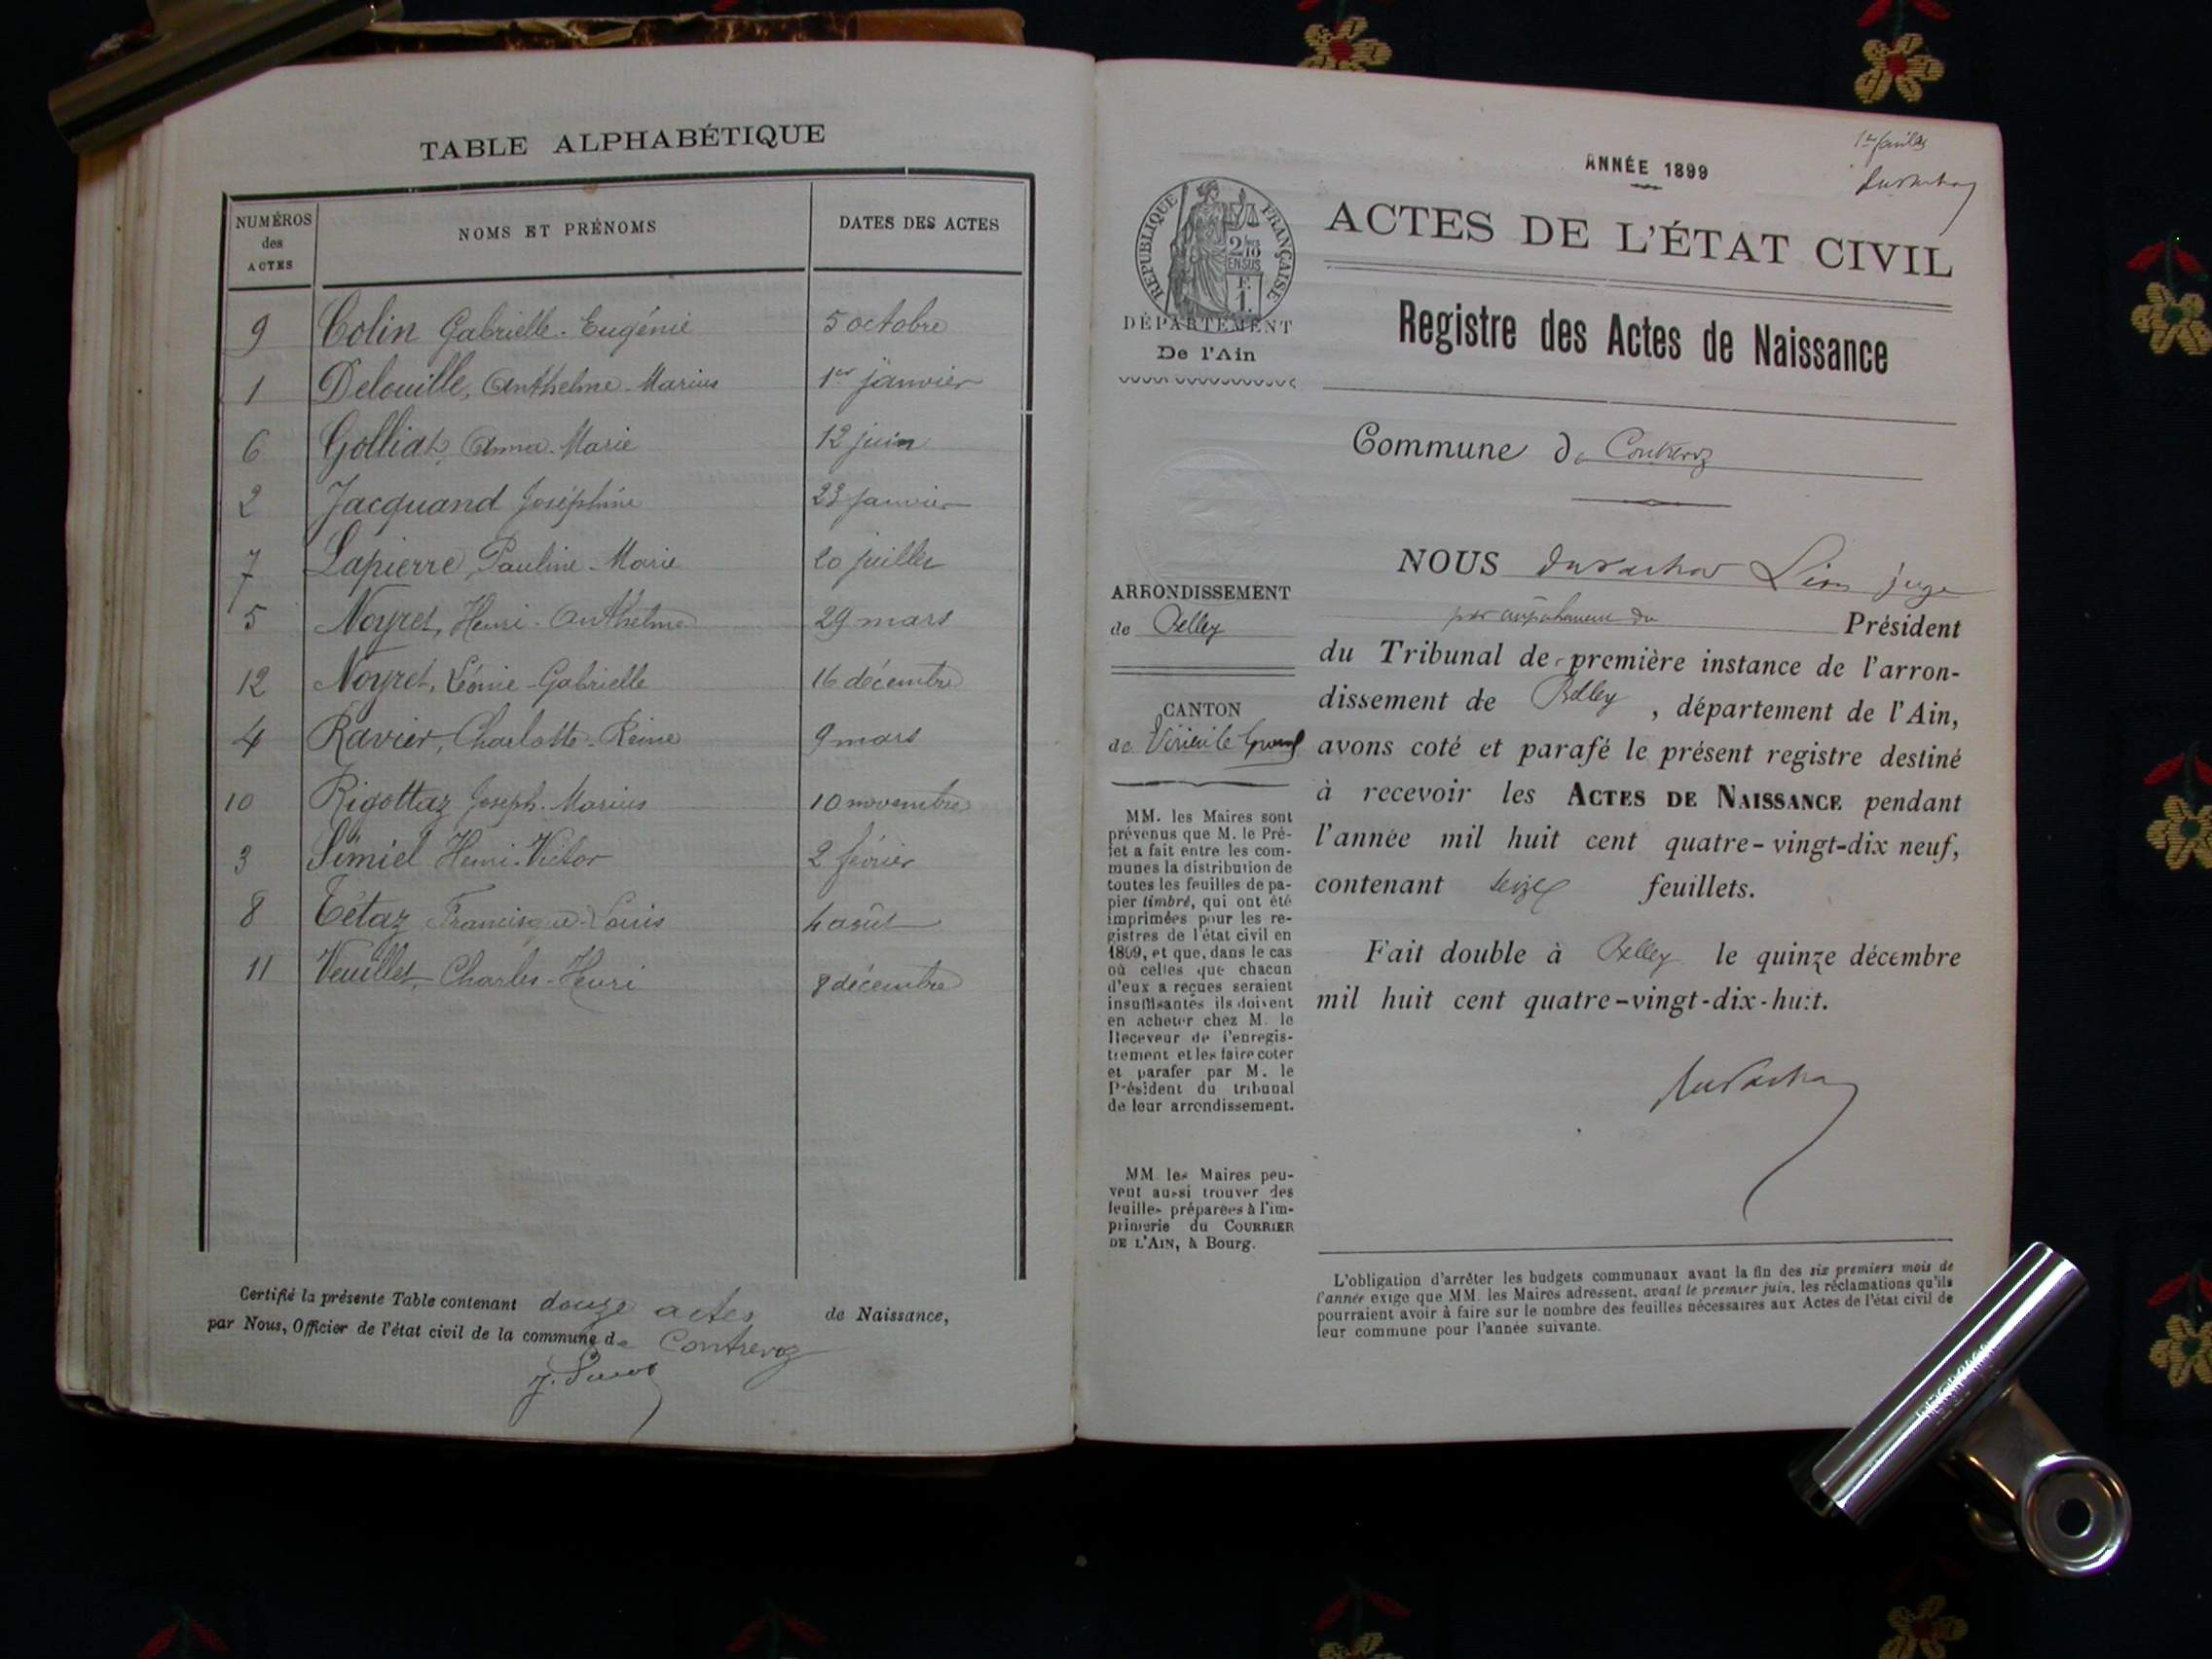 TABLE ALPHABÉTIQUE
NUMÉROS des ACTES NOMS ET PRÉNOMS DATES DES ACTES
9 Colin Gabrielle-Eugénie 5 octobre
1 Delouille, Anthelme-Marius 1er janvier
6 Golliat, Anna-Marie 12 juin
2 Jacquand Joséphine 23 janvier
7 Lapierre, Pauline-Marie 20 juillet
5 Noyret, Henri-Anthelme 29 mars
12 Noyret, Léonie-Gabrielle 16 décembre
4 Ravier, Charlotte-Reine 9 mars
10 Rigottaz Joseph-Marius 10 novembre
3 Simiel Henri-Victor 2 février
8 Tétaz Francisque-Louis 4 août
11 Veuillet, Charles-Henri 8 décembre
Certifié la présente Table contenant douze actes de Naissance,
par Nous, Officier de l'état civil de la commune de Contrevoz
ANNÉE 1899
ACTES DE L'ÉTAT CIVIL
Registre des Actes de Naissance
RÉPUBLIQUE FRANÇAISE
DÉPARTEMENT
De l'Ain
Commune de Contrevoz
ARRONDISSEMENT
de Belley
CANTON
de Virieu le Grand
MM. les Maires sont
prévenus que M. le Pré-
fet a fait entre les com-
munes la distribution de
toutes les feuilles de pa-
pier timbré, qui ont été
imprimées pour les re-
gistres de l'état civil en
1899, et que, dans le cas
où celles que chacun
d'eux a reçues seraient
insuffisantes ils doivent
en acheter chez M. le
Receveur de l'enregis-
trement et les faire coter
et parafer par M. le
Président du tribunal
de leur arrondissement.
MM. les Maires peu-
vent aussi trouver des
feuilles préparées à l'im-
primerie du COURRIER
DE L'AIN, à Bourg.
NOUS Léon juge
Président
du Tribunal de première instance de l'arron-
dissement de Belley, département de l'Ain,
avons coté et parafé le présent registre destiné
à recevoir les ACTES DE NAISSANCE pendant
l'année mil huit cent quatre-vingt-dix neuf,
contenant seize feuillets.
Fait double à Belley le quinze décembre
mil huit cent quatre-vingt-dix-huit.
L'obligation d'arrêter les budgets communaux avant la fin des six premiers mois de
l'année exige que MM. les Maires adressent, avant le premier juin, les réclamations qu'ils
pourraient avoir à faire sur le nombre des feuilles nécessaires aux Actes de l'état civil de
leur commune pour l'année suivante.